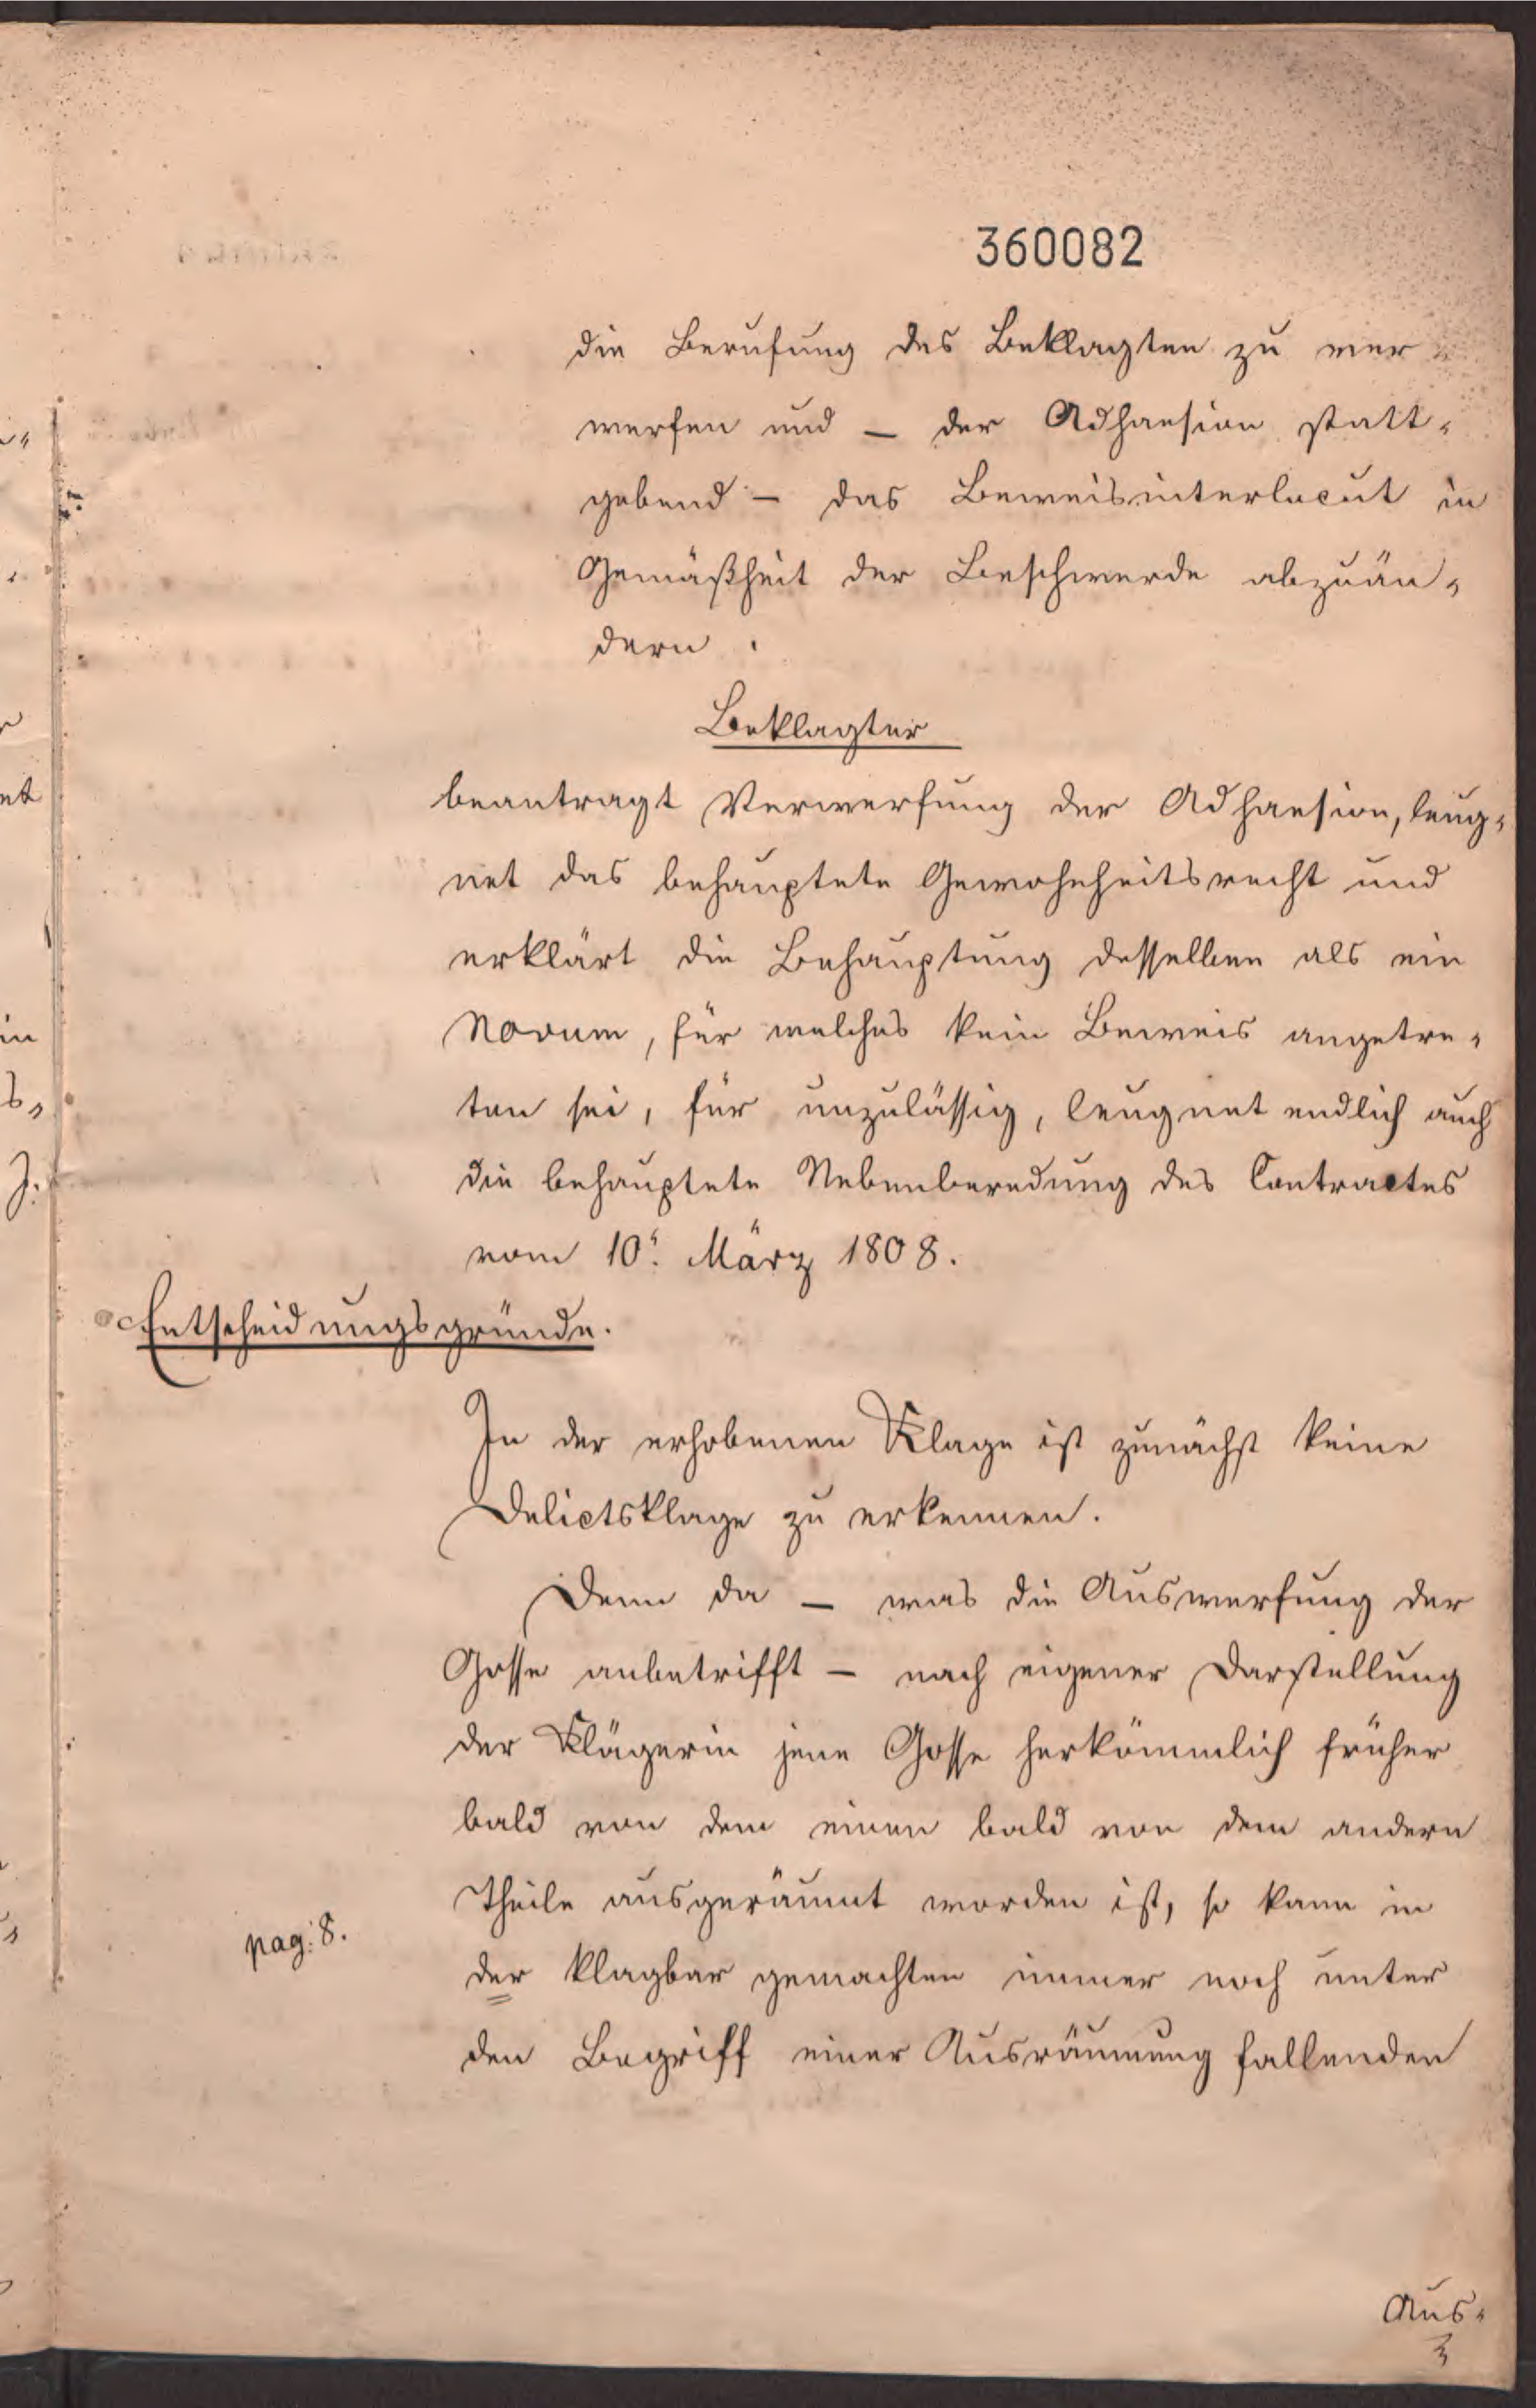 360082
die Berufung des Beklagten zu ver-
werfen und — der Adhaesion statt-
gebend — das Beweisinterlocut in
Gemäßheit der Beschwerde abzuän-
dern.
Beklagter
beantragt Verwerfung der Adhaesion, leug-
net das behauptete Gewohnheitsrecht und
erklärt die Behauptung desselben als ein
Novum, für welches kein Beweis angetre-
ten sei, für unzulässig, leugnet endlich auch
die behauptete Nebenberedung des Contractes
vom 10t. März 1808.
Entscheidungsgründe.
In der erhobenen Klage ist zunächst keine
Delictsklage zu erkennen.
Denn da — was die Auswerfung der
Gosse anbetrifft — nach eigener Darstellung
der Klägerin jene Gosse herkömmlich früher
bald von dem einen bald von dem andern
Theile ausgeräumt worden ist, so kann in
pag: 8.
der klagbar gemachten immer noch unter
den Begriff einer Ausräumung fallenden
Aus-
3